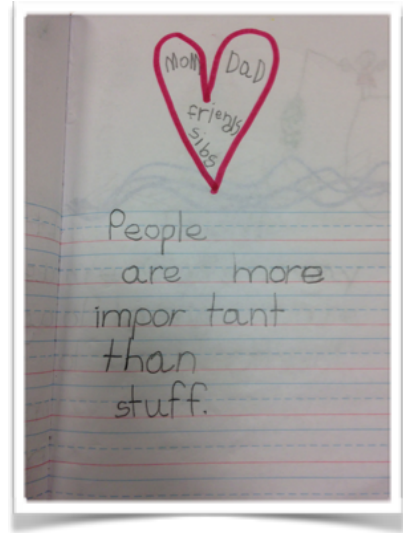 Mom Dad
friends
sibs
People
are more
impor tant
than
stuff.